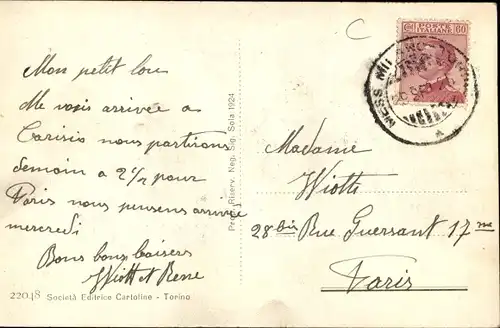 Mon petit lou
Me voisi arrivée a
Carisis nous partirons
demain a 2 1/2 pour
Paris nous pensons arrivée
mercredi
Bons bons baisers
Wiott et Rene
22048 Società Editrice Cartoline - Torino
Propr. Riserv. Neg. Sig. Sola 1924
C
POSTE ITALIANE
60
MESS MILANO
Madame
Wiott
28 bis Rue Guersant 17me
Paris